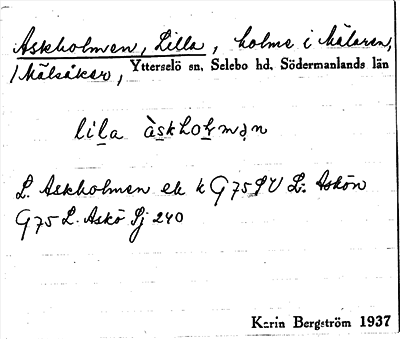 Askholmen, Lilla, holme i Mälaren,
i Mälsåker, Ytterselö sn. Selebo hd. Södermanlands län
lila àskholmən
L. Askholmen ek k G 75 SV L: Askön
G 75 L. Askö Sj 240
Karin Bergström 1937